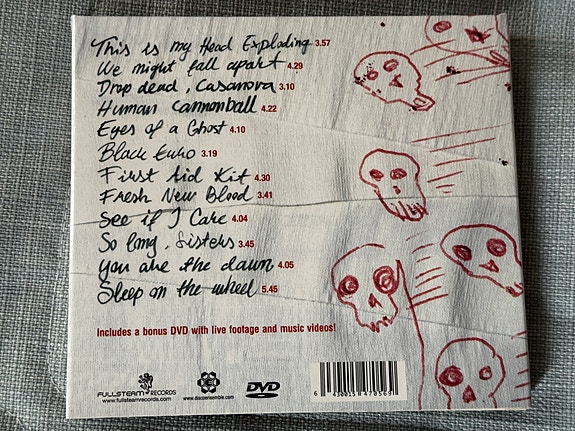 This is my Head Exploding 3.57
We might fall apart 4.29
Drop dead, Casanova 3.10
Human Cannonball 4.22
Eyes of a Ghost 4.10
Black Euro 3.19
First Aid Kit 4.30
Fresh New Blood 3.41
See if I Care 4.04
So long, Sisters 3.45
You are the dawn 4.05
Sleep on the wheel 5.45
Includes a bonus DVD with live footage and music videos!
FULLSTEAM RECORDS
www.fullsteamrecords.com
www.discoensemble.com
DVD
6 430015 470569